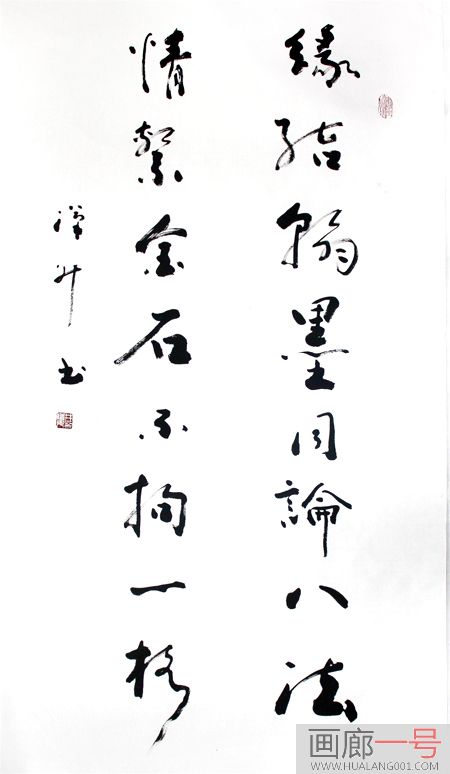 缘结翰墨同論八法
情繫金石不拘一格
漢升书
画廊一号
WWW.HUALANG001.COM